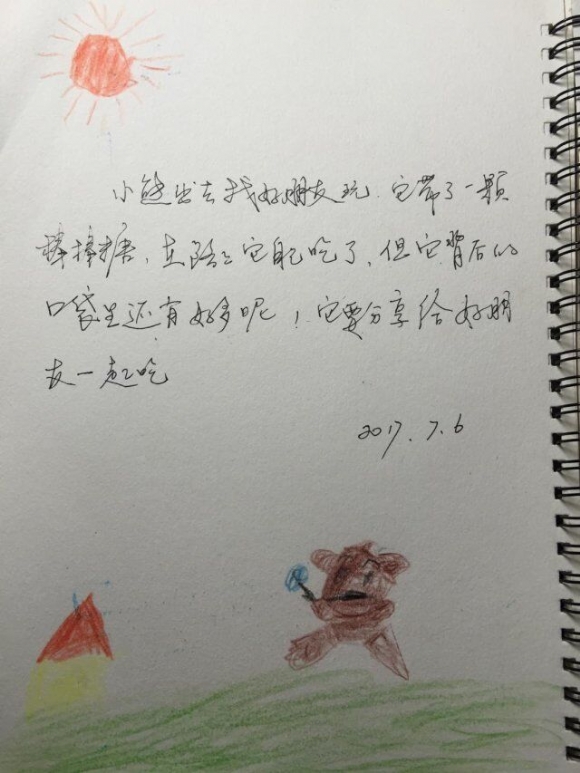 小熊出去找好朋友玩.它带了一颗
棒棒糖,在路上它自己吃了,但它背后的
口袋里还有好多呢!它要分享给好朋
友一起吃
2017.7.6